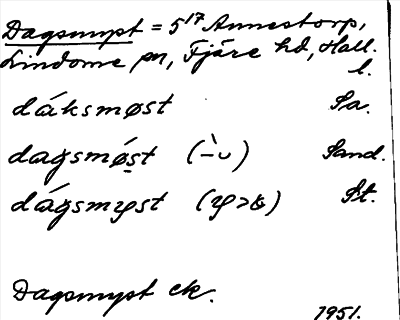 Dagsmyst = 5¹⁷ Annestorp,
Lindome sn, Fjäre hd, Hall.
l.
dáksmøst Sa.
dagsmǿst (–̀ ᴗ) Sand.
dágsmyst St.
Dagsmyst ek.
1951.